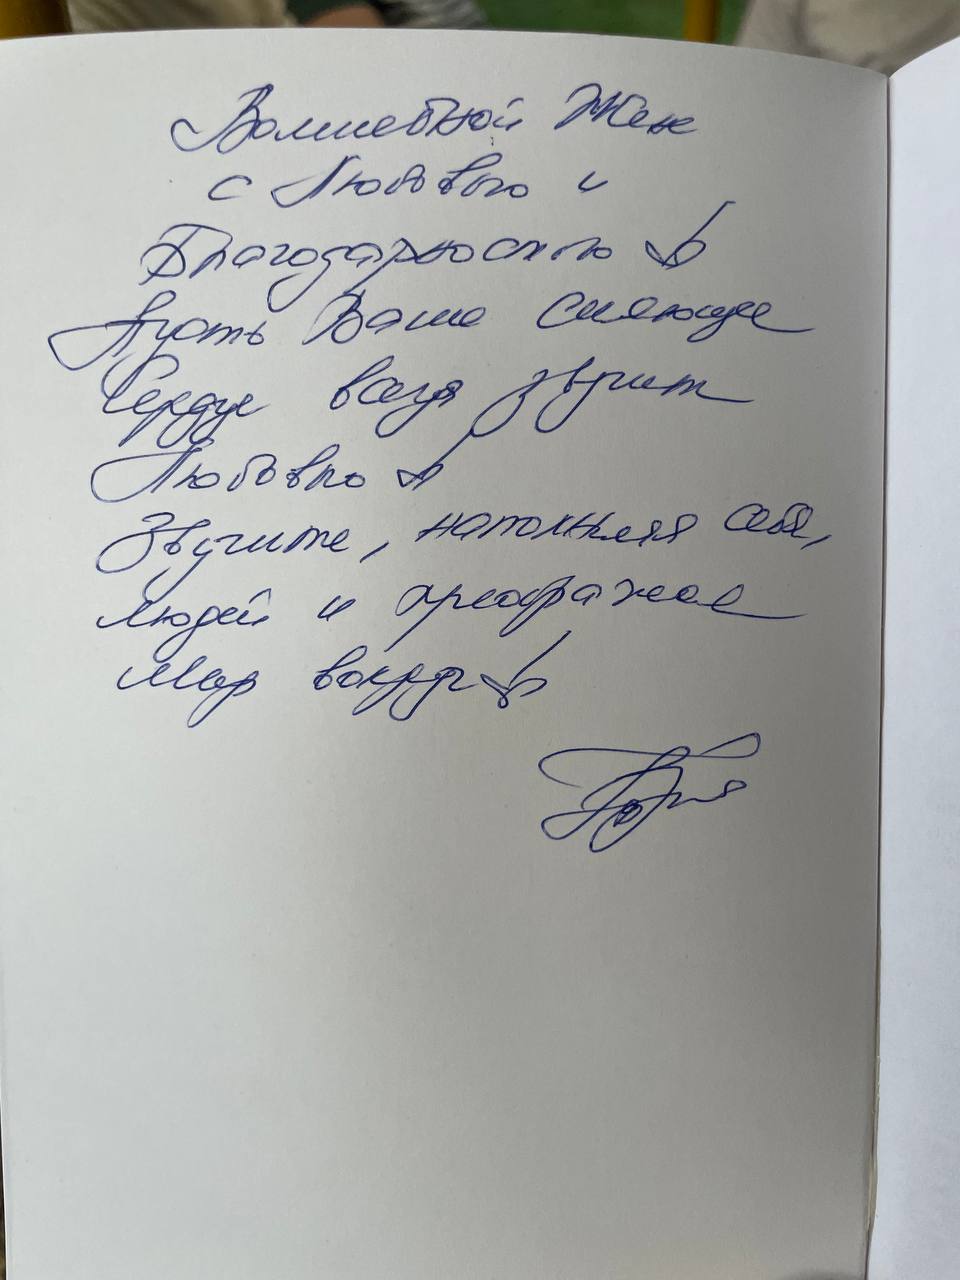 Волшебной Жене
с Любовью и
Благодарностью
Пусть Ваше сияющее
Сердце всегда звучит
Любовью
Звучите, наполняя себя,
людей и преображая
Мир вокруг